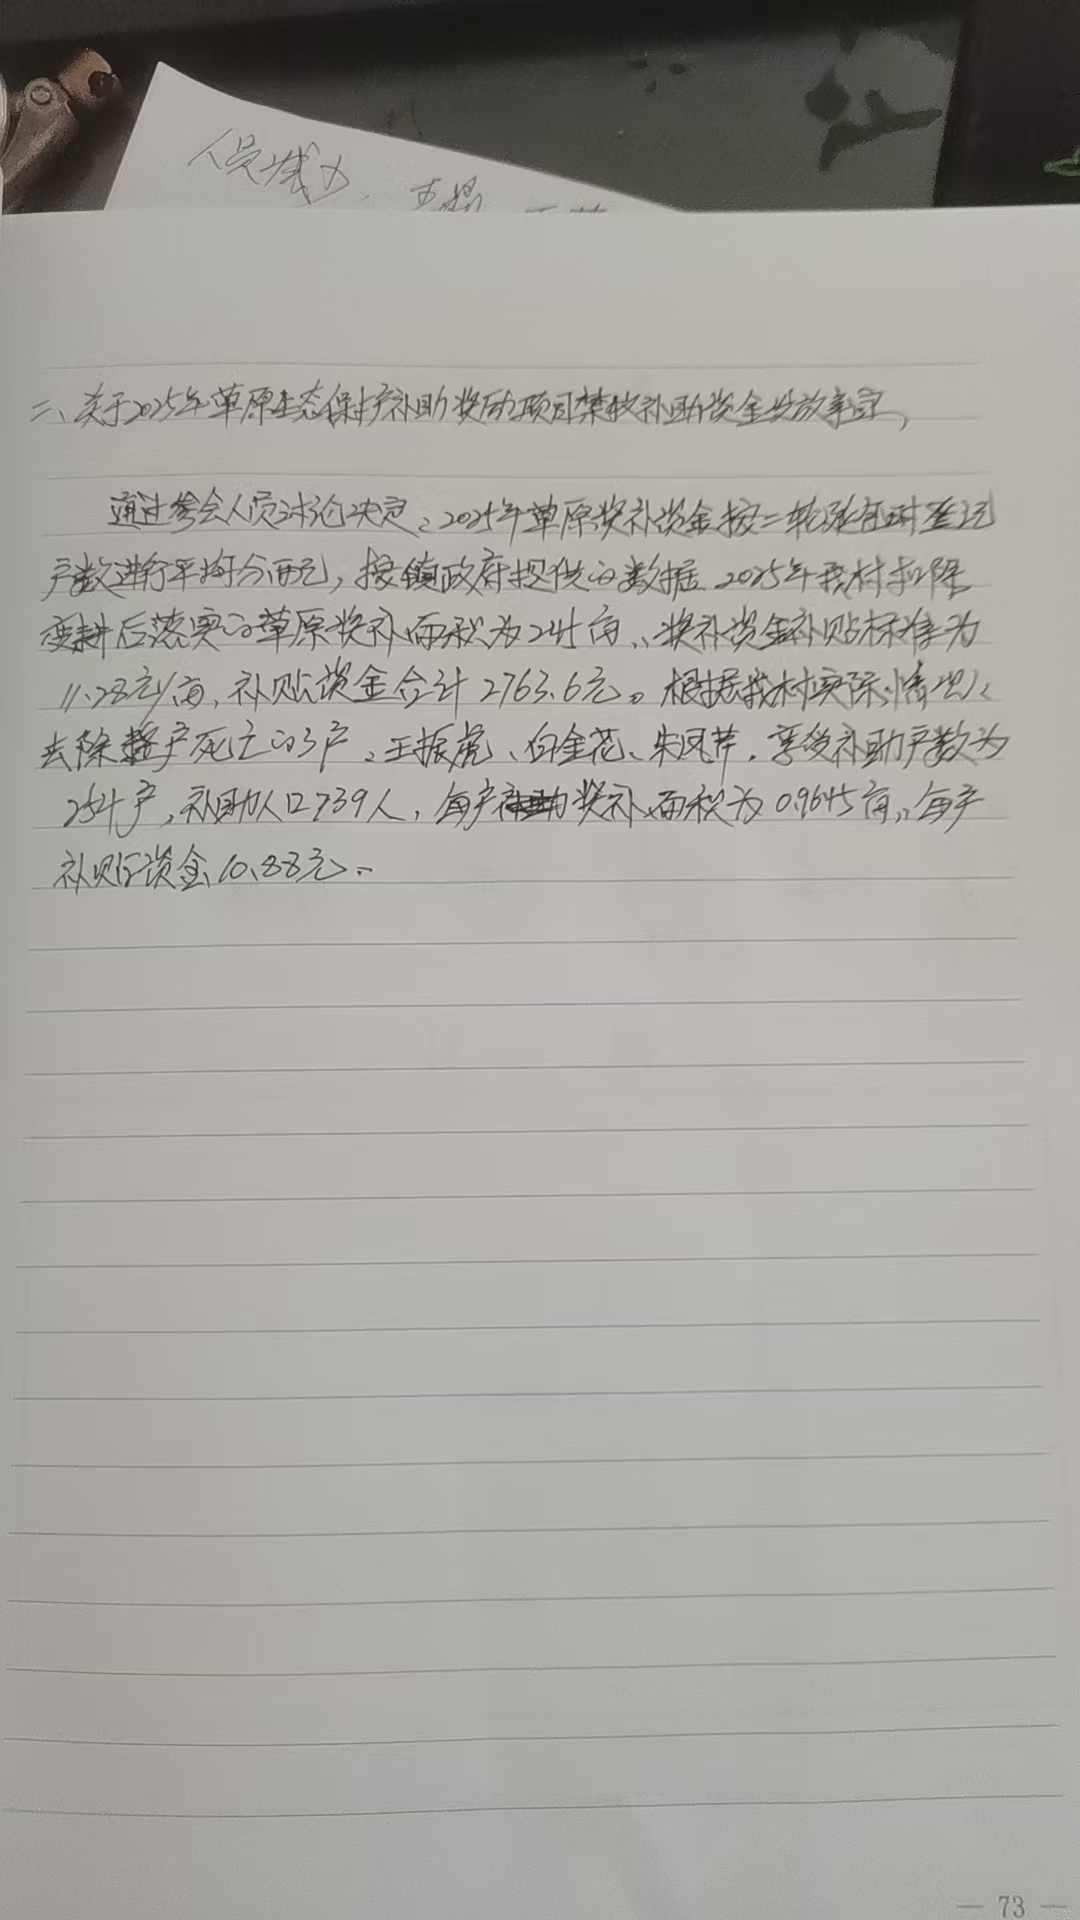 人员减少,
二、关于2025年草原生态保护补助奖励项目禁牧补助资金发放事宜,
通过参会人员讨论决定、2025年草原奖补资金按二轮延包时登记
户数进行平均分配, 按镇政府提供的数据 2025年我村扣除
变耕后落实的草原奖补面积为245亩、奖补资金补贴标准为
11.28元/亩, 补贴资金合计 2763.6元。根据我村实际情况、
去除整户死亡的3户、王振虎、白金花、朱凤芹. 享受补助户数为
254户, 补助人口739人, 每户奖补面积为0.9645亩, 每户
补贴资金10.88元、
— 73 —